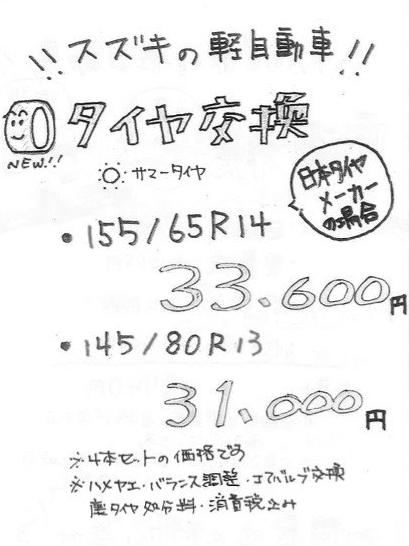 !! スズキの軽自動車 !!
タイヤ交換
NEW!!
サマータイヤ
日本タイヤ
メーカー
の場合
・155/65R14
33.600円
・145/80R13
31.000円
※4本セットの価格です
※ハメカエ・バランス調整・エアバルブ交換
廃タイヤ処分料・消費税込み